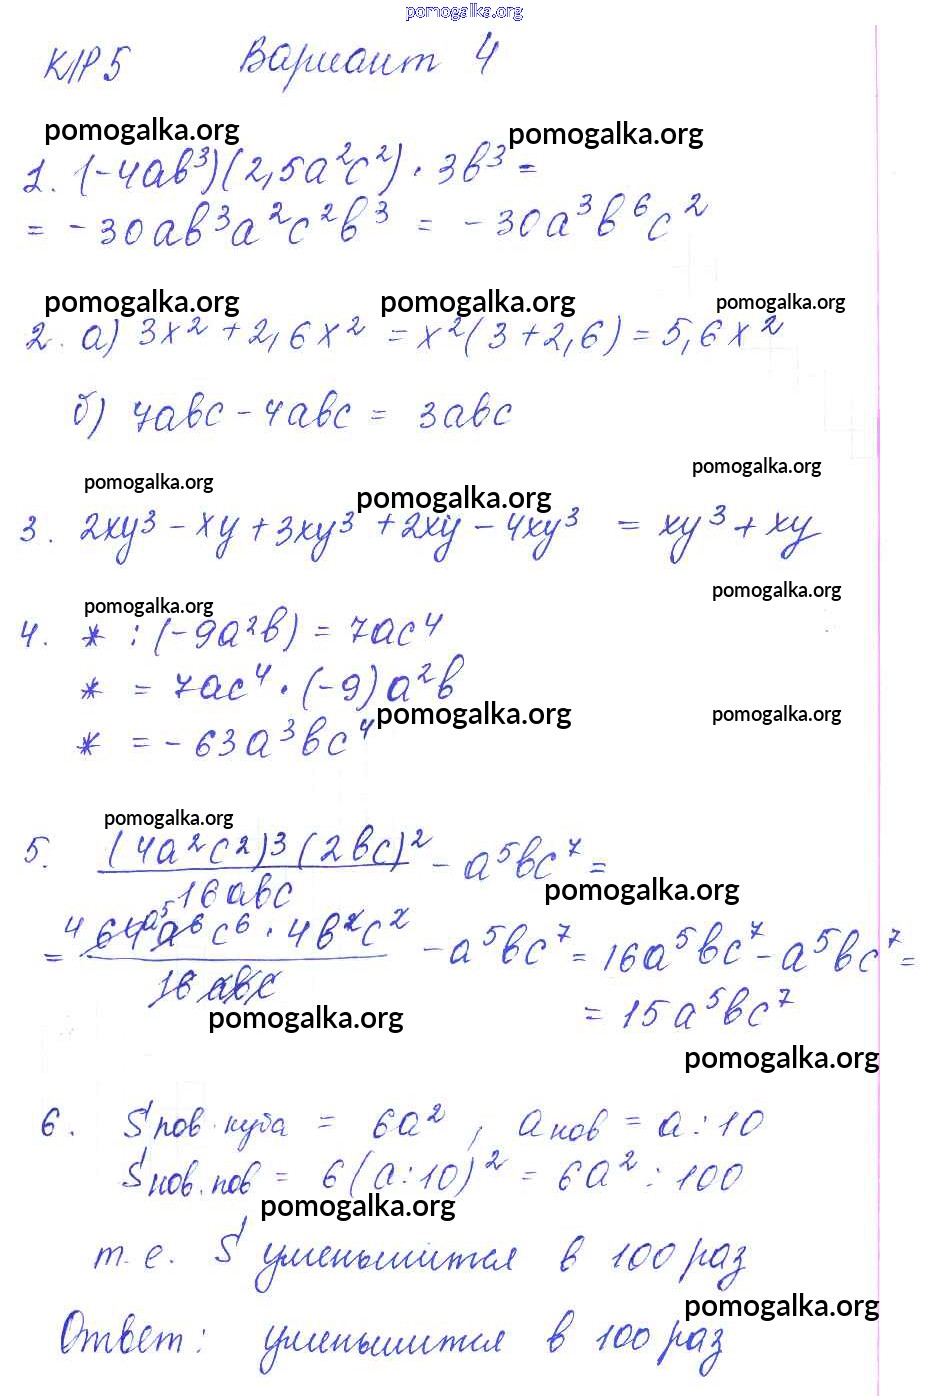 pomogalka.org
К/Р 5 Вариант 4
pomogalka.org pomogalka.org
1. (-4ab³)(2,5a²c²) · 3b³ =
= -30ab³a²c²b³ = -30a³b⁶c²
pomogalka.org pomogalka.org pomogalka.org
2. а) 3x² + 2,6x² = x²(3 + 2,6) = 5,6x²
б) 7abc - 4abc = 3abc
pomogalka.org pomogalka.org pomogalka.org
3. 2xy³ - xy + 3xy³ + 2xy - 4xy³ = xy³ + xy
pomogalka.org pomogalka.org
4. * : (-9a²b) = 7ac⁴
* = 7ac⁴ · (-9)a²b
pomogalka.org pomogalka.org
* = -63a³bc⁴
pomogalka.org
5. (4a²c²)³(2bc)² - a⁵bc⁷ =
16abc
pomogalka.org
= 4 64a⁵a⁶c⁶ · 4b²c² - a⁵bc⁷ = 16a⁵bc⁷ - a⁵bc⁷ =
16abc
= 15a⁵bc⁷
pomogalka.org
pomogalka.org
6. S пов. куба = 6a², a нов = a : 10
S нов. пов = 6(a:10)² = 6a² : 100
pomogalka.org
т. е. S уменьшится в 100 раз
pomogalka.org
Ответ: уменьшится в 100 раз